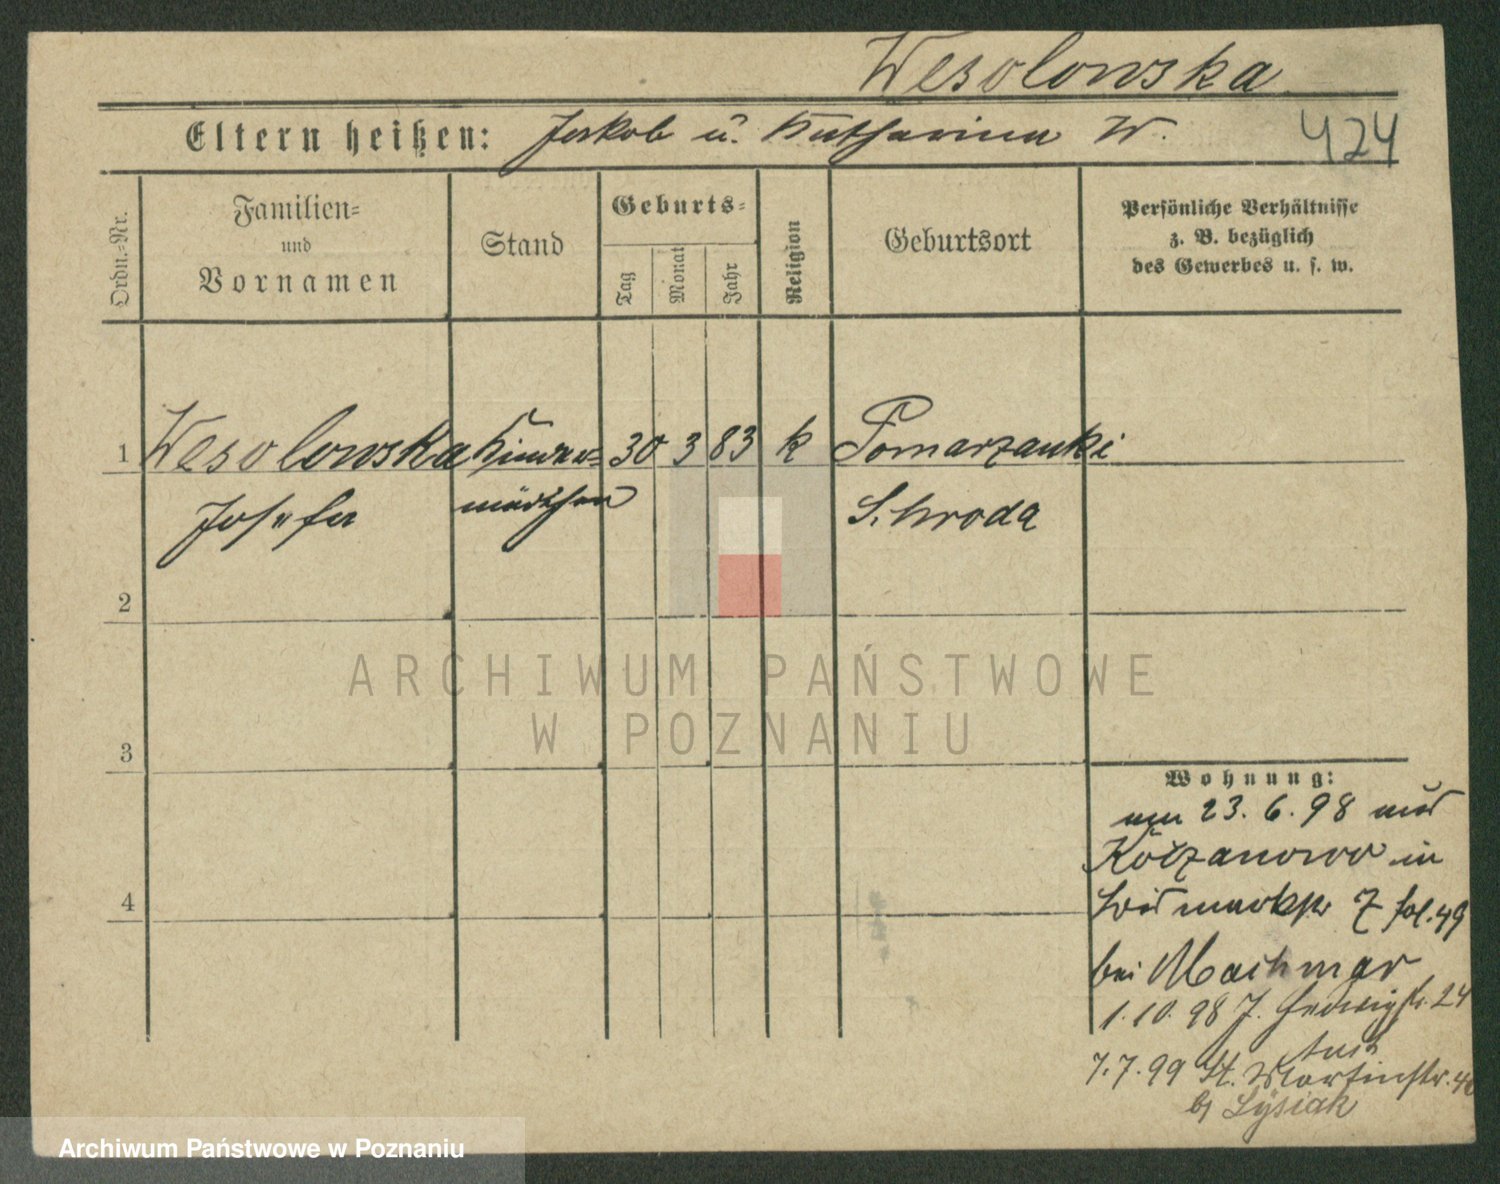 Wesolowska
Eltern heißen: Jakob u. Katharina W. 424
Ordn.-Nr.
Familien-
und
Vornamen
Stand
Geburts-
Tag
Monat
Jahr
Religion
Geburtsort
Persönliche Verhältnisse
z. B. bezüglich
des Gewerbes u. s. w.
1 Wesolowska Kinder- 30 3 83 k Pomarzanki
Josefa mädchen Schroda
2
ARCHIWUM PAŃSTWOWE
W POZNANIU
3
Wohnung:
am 23. 6. 98 aus
in
4
Bismarckstr 7 fol. 49
bei Machmar
1. 10. 98 J. Hedwigstr. 24
7. 7. 99 St. Martinstr. 40
b/ Lysiak
Archiwum Państwowe w Poznaniu